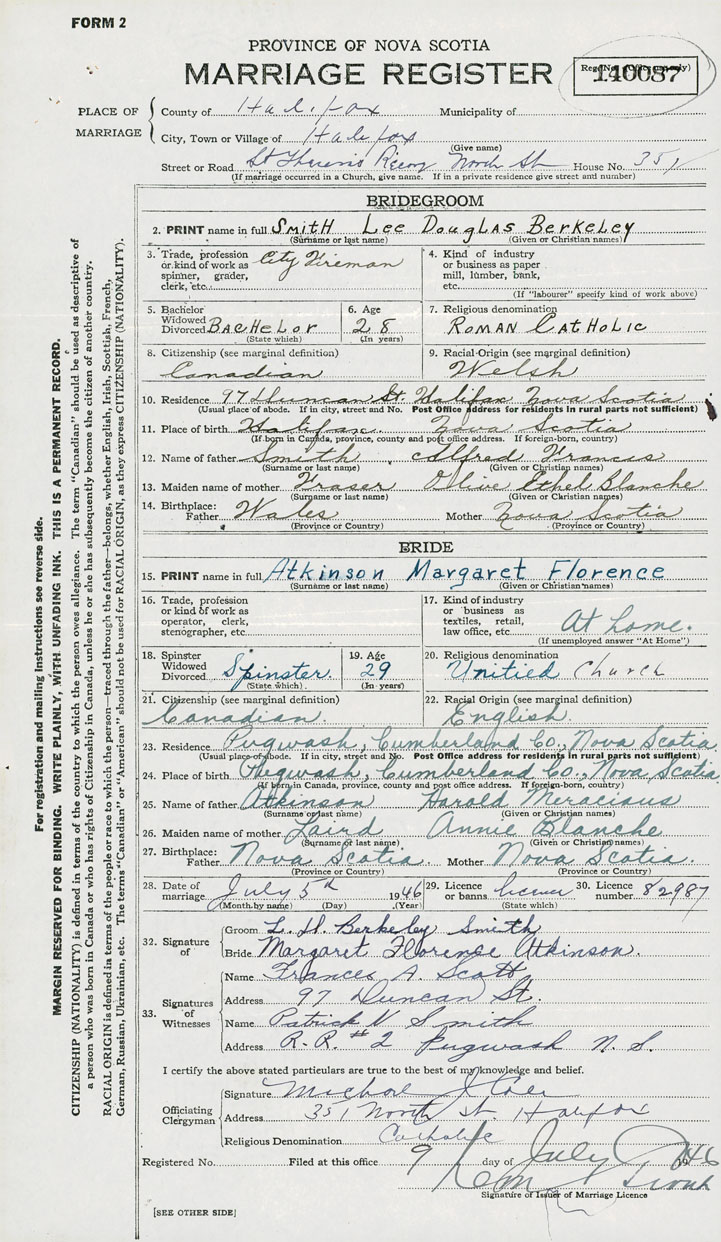 FORM 2
PROVINCE OF NOVA SCOTIA
MARRIAGE REGISTER
140087
PLACE OF MARRIAGE
County of Halifax Municipality of
City, Town or Village of Halifax
(Give name)
Street or Road St Theresa's Rectory North St House No. 351
(If marriage occurred in a Church, give name. If in a private residence give street and number)
BRIDEGROOM
2. PRINT name in full Smith Lee Douglas Berkeley
(Surname or last name) (Given or Christian names)
3. Trade, profession or kind of work as spinner, grader, clerk, etc. City Fireman
4. Kind of industry or business as paper mill, lumber, bank, etc.
(If "labourer" specify kind of work above)
5. Bachelor Widowed Divorced Bachelor (State which)
6. Age 28 (In years)
7. Religious denomination Roman Catholic
8. Citizenship (see marginal definition) Canadian
9. Racial Origin (see marginal definition) Welsh
10. Residence 97 Duncan St. Halifax Nova Scotia
(Usual place of abode. If in city, street and No. Post Office address for residents in rural parts not sufficient)
11. Place of birth Halifax Nova Scotia
(If born in Canada, province, county and post office address. If foreign-born, country)
12. Name of father Smith Alfred Francis
(Surname or last name) (Given or Christian names)
13. Maiden name of mother Fraser Olive Ethel Blanche
(Surname or last name) (Given or Christian names)
14. Birthplace: Father Wales Mother Nova Scotia
(Province or Country) (Province or Country)
BRIDE
15. PRINT name in full Atkinson Margaret Florence
(Surname or last name) (Given or Christian names)
16. Trade, profession or kind of work as operator, clerk, stenographer, etc.
17. Kind of industry or business as textiles, retail, law office, etc. At home.
(If unemployed answer "At Home")
18. Spinster Widowed Divorced Spinster. (State which)
19. Age 29 (In years)
20. Religious denomination Unitied Church
21. Citizenship (see marginal definition) Canadian.
22. Racial Origin (see marginal definition) English.
23. Residence Pugwash, Cumberland Co., Nova Scotia.
(Usual place of abode. If in city, street and No. Post Office address for residents in rural parts not sufficient)
24. Place of birth Pugwash, Cumberland Co., Nova Scotia
(If born in Canada, province, county and post office address. If foreign-born, country)
25. Name of father Atkinson Harold Meracious
(Surname or last name) (Given or Christian names)
26. Maiden name of mother Laird Annie Blanche
(Surname or last name) (Given or Christian names)
27. Birthplace: Father Nova Scotia Mother Nova Scotia.
(Province or Country) (Province or Country)
28. Date of marriage July 5th 1946
(Month by name) (Day) (Year)
29. Licence or banns license (State which)
30. Licence number 82987
32. Signature of
Groom L. D. Berkeley Smith
Bride Margaret Florence Atkinson.
33. Signatures of Witnesses
Name Frances A. Scott
Address 97 Duncan St.
Name Patrick V Smith
Address R.R. #2 Pugwash N.S.
I certify the above stated particulars are true to the best of my knowledge and belief.
Officiating Clergyman
Signature Michael J
Address 351 North St Halifax
Religious Denomination Catholic
Registered No. Filed at this office 9 day of July 1946
Signature of Issuer of Marriage Licence
[SEE OTHER SIDE]
For registration and mailing instructions see reverse side.
MARGIN RESERVED FOR BINDING. WRITE PLAINLY, WITH UNFADING INK. THIS IS A PERMANENT RECORD.
CITIZENSHIP (NATIONALITY) is defined in terms of the country to which the person owes allegiance. The term "Canadian" should be used as descriptive of
a person who was born in Canada or who has rights of Citizenship in Canada, unless he or she has subsequently become the citizen of another country.
RACIAL ORIGIN is defined in terms of the people or race to which the person—traced through the father—belongs, whether English, Irish, Scottish, French,
German, Russian, Ukrainian, etc. The terms "Canadian" or "American" should not be used for RACIAL ORIGIN, as they express CITIZENSHIP (NATIONALITY).